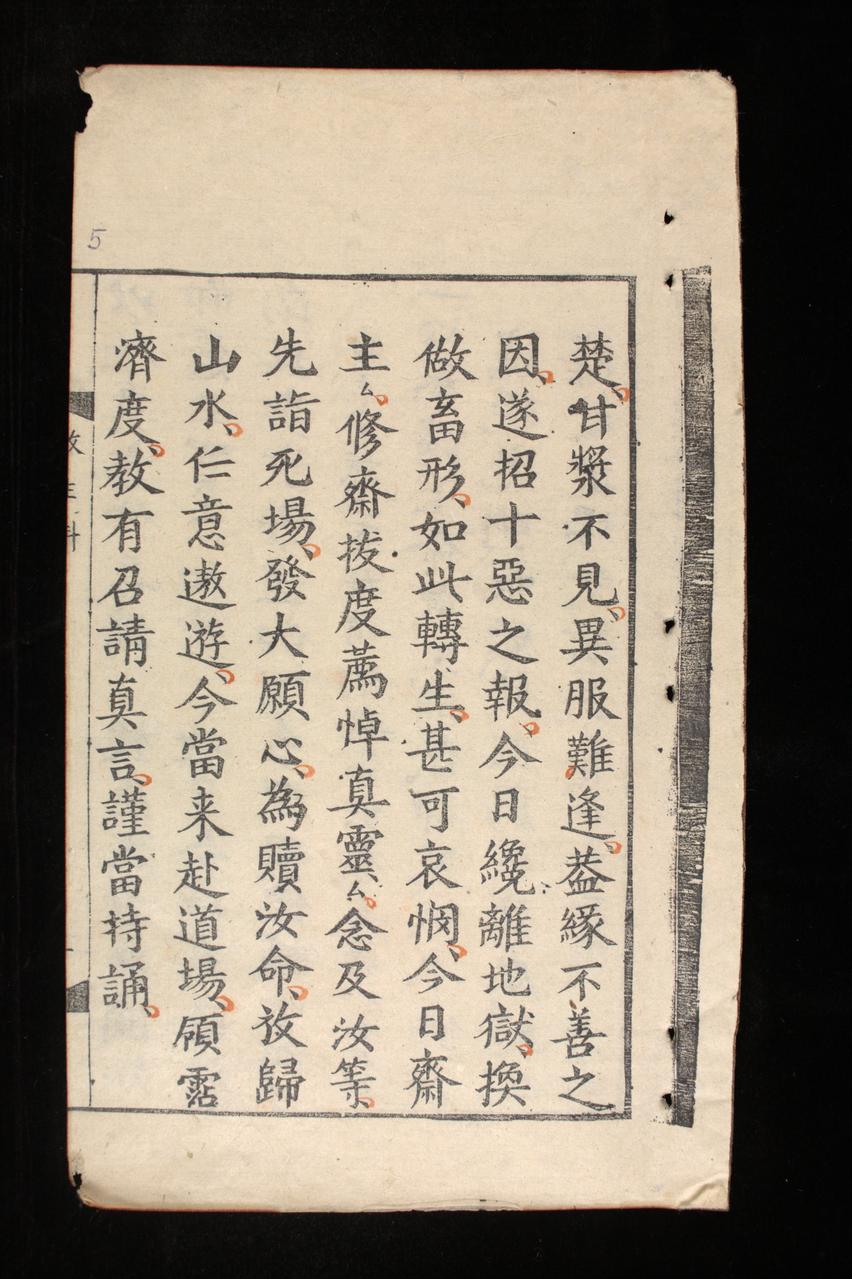 楚甘漿不見異服難逢葢緣不善之
因遂招十惡之報今日纔離地獄換
做畜形如此轉生甚可哀憫今日齋
主厶修齋拔度薦悼真靈厶念及汝等
先詣死場發大願心為贖汝命放歸
山水任意遨遊今當来赴道場領霑
濟度教有召請真言謹當持誦
放生科
5